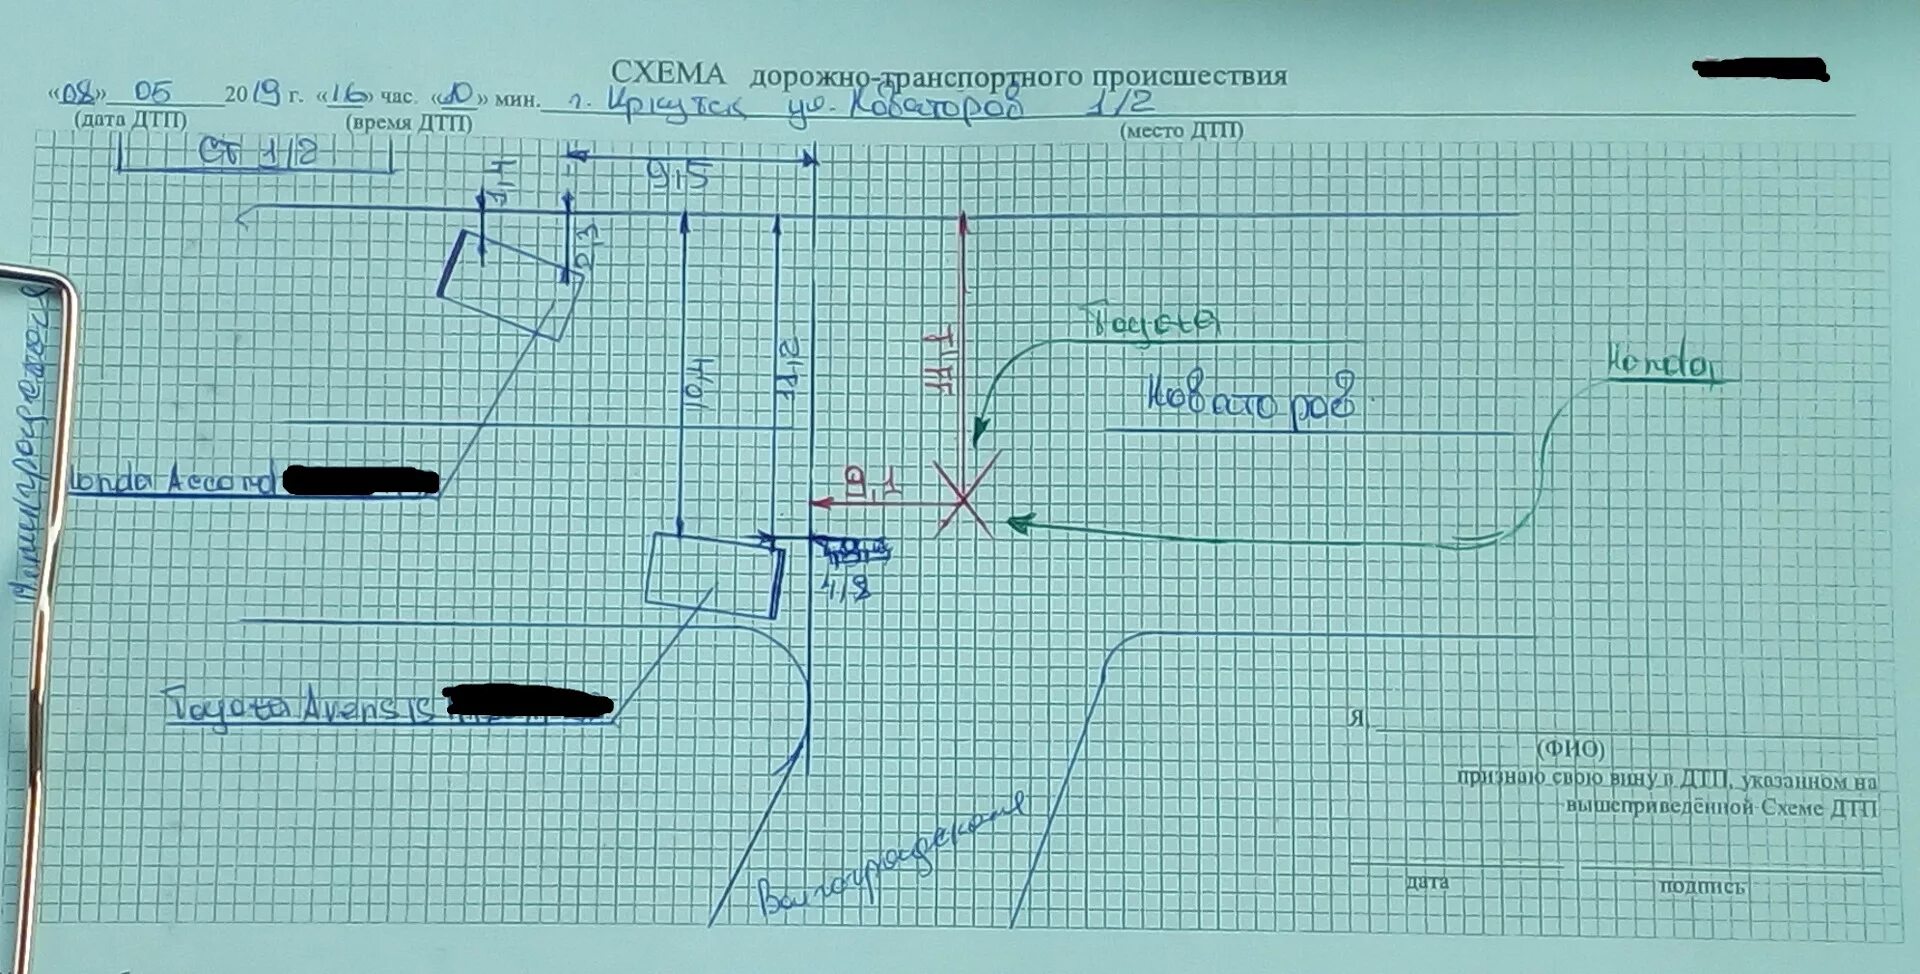 СХЕМА дорожно-транспортного происшествия
«08» 05 2019 г. «16» час. «10» мин. г. Иркутск ул. Новаторов 1/2
(дата ДТП) (время ДТП) (место ДТП)
ст 1/2
9,5
1,4
2,3
10,4
11,2
Toyota
Новаторов
Honda
9,1
Honda Accord
1,8
Toyota Avensis
Волгоградская
Я,
(ФИО)
признаю свою вину в ДТП, указанном на
вышеприведённой Схеме ДТП
дата подпись